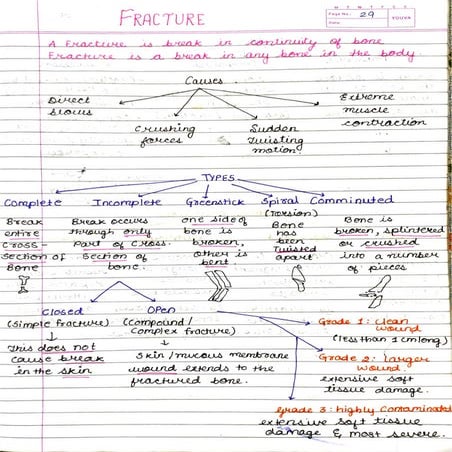 FRACTURE
M T W T F S S
Page No.: 29
Date:
YOUVA
A Fracture is break in continuity of bone
Fracture is a break in any bone in the body.
Causes
Direct
blows
Crushing
forces
Sudden
Twisting
motion.
Extreme
muscle
contraction
TYPES
Complete
Break
entire
cross-
section of
Bone
Incomplete
Break occurs
through only
Part of cross.
Section of
bone.
Greenstick
one side of
bone is
broken,
other is
bent.
Spiral
(Torsion)
Bone
has
been
Twisted
apart
Comminuted
Bone is
broken, splintered
or crushed
into a number
of pieces
Closed
(Simple fracture)
This does not
cause break
in the skin
Open
(Compound/
Complex fracture)
Skin/mucous membrane
wound extends to the
fractured bone.
Grade 1: clean
wound
(less than 1cm long)
Grade 2: larger
wound.
extensive soft
tissue damage.
Grade 3: highly Contaminated
extensive soft tissue
damage & most severe.